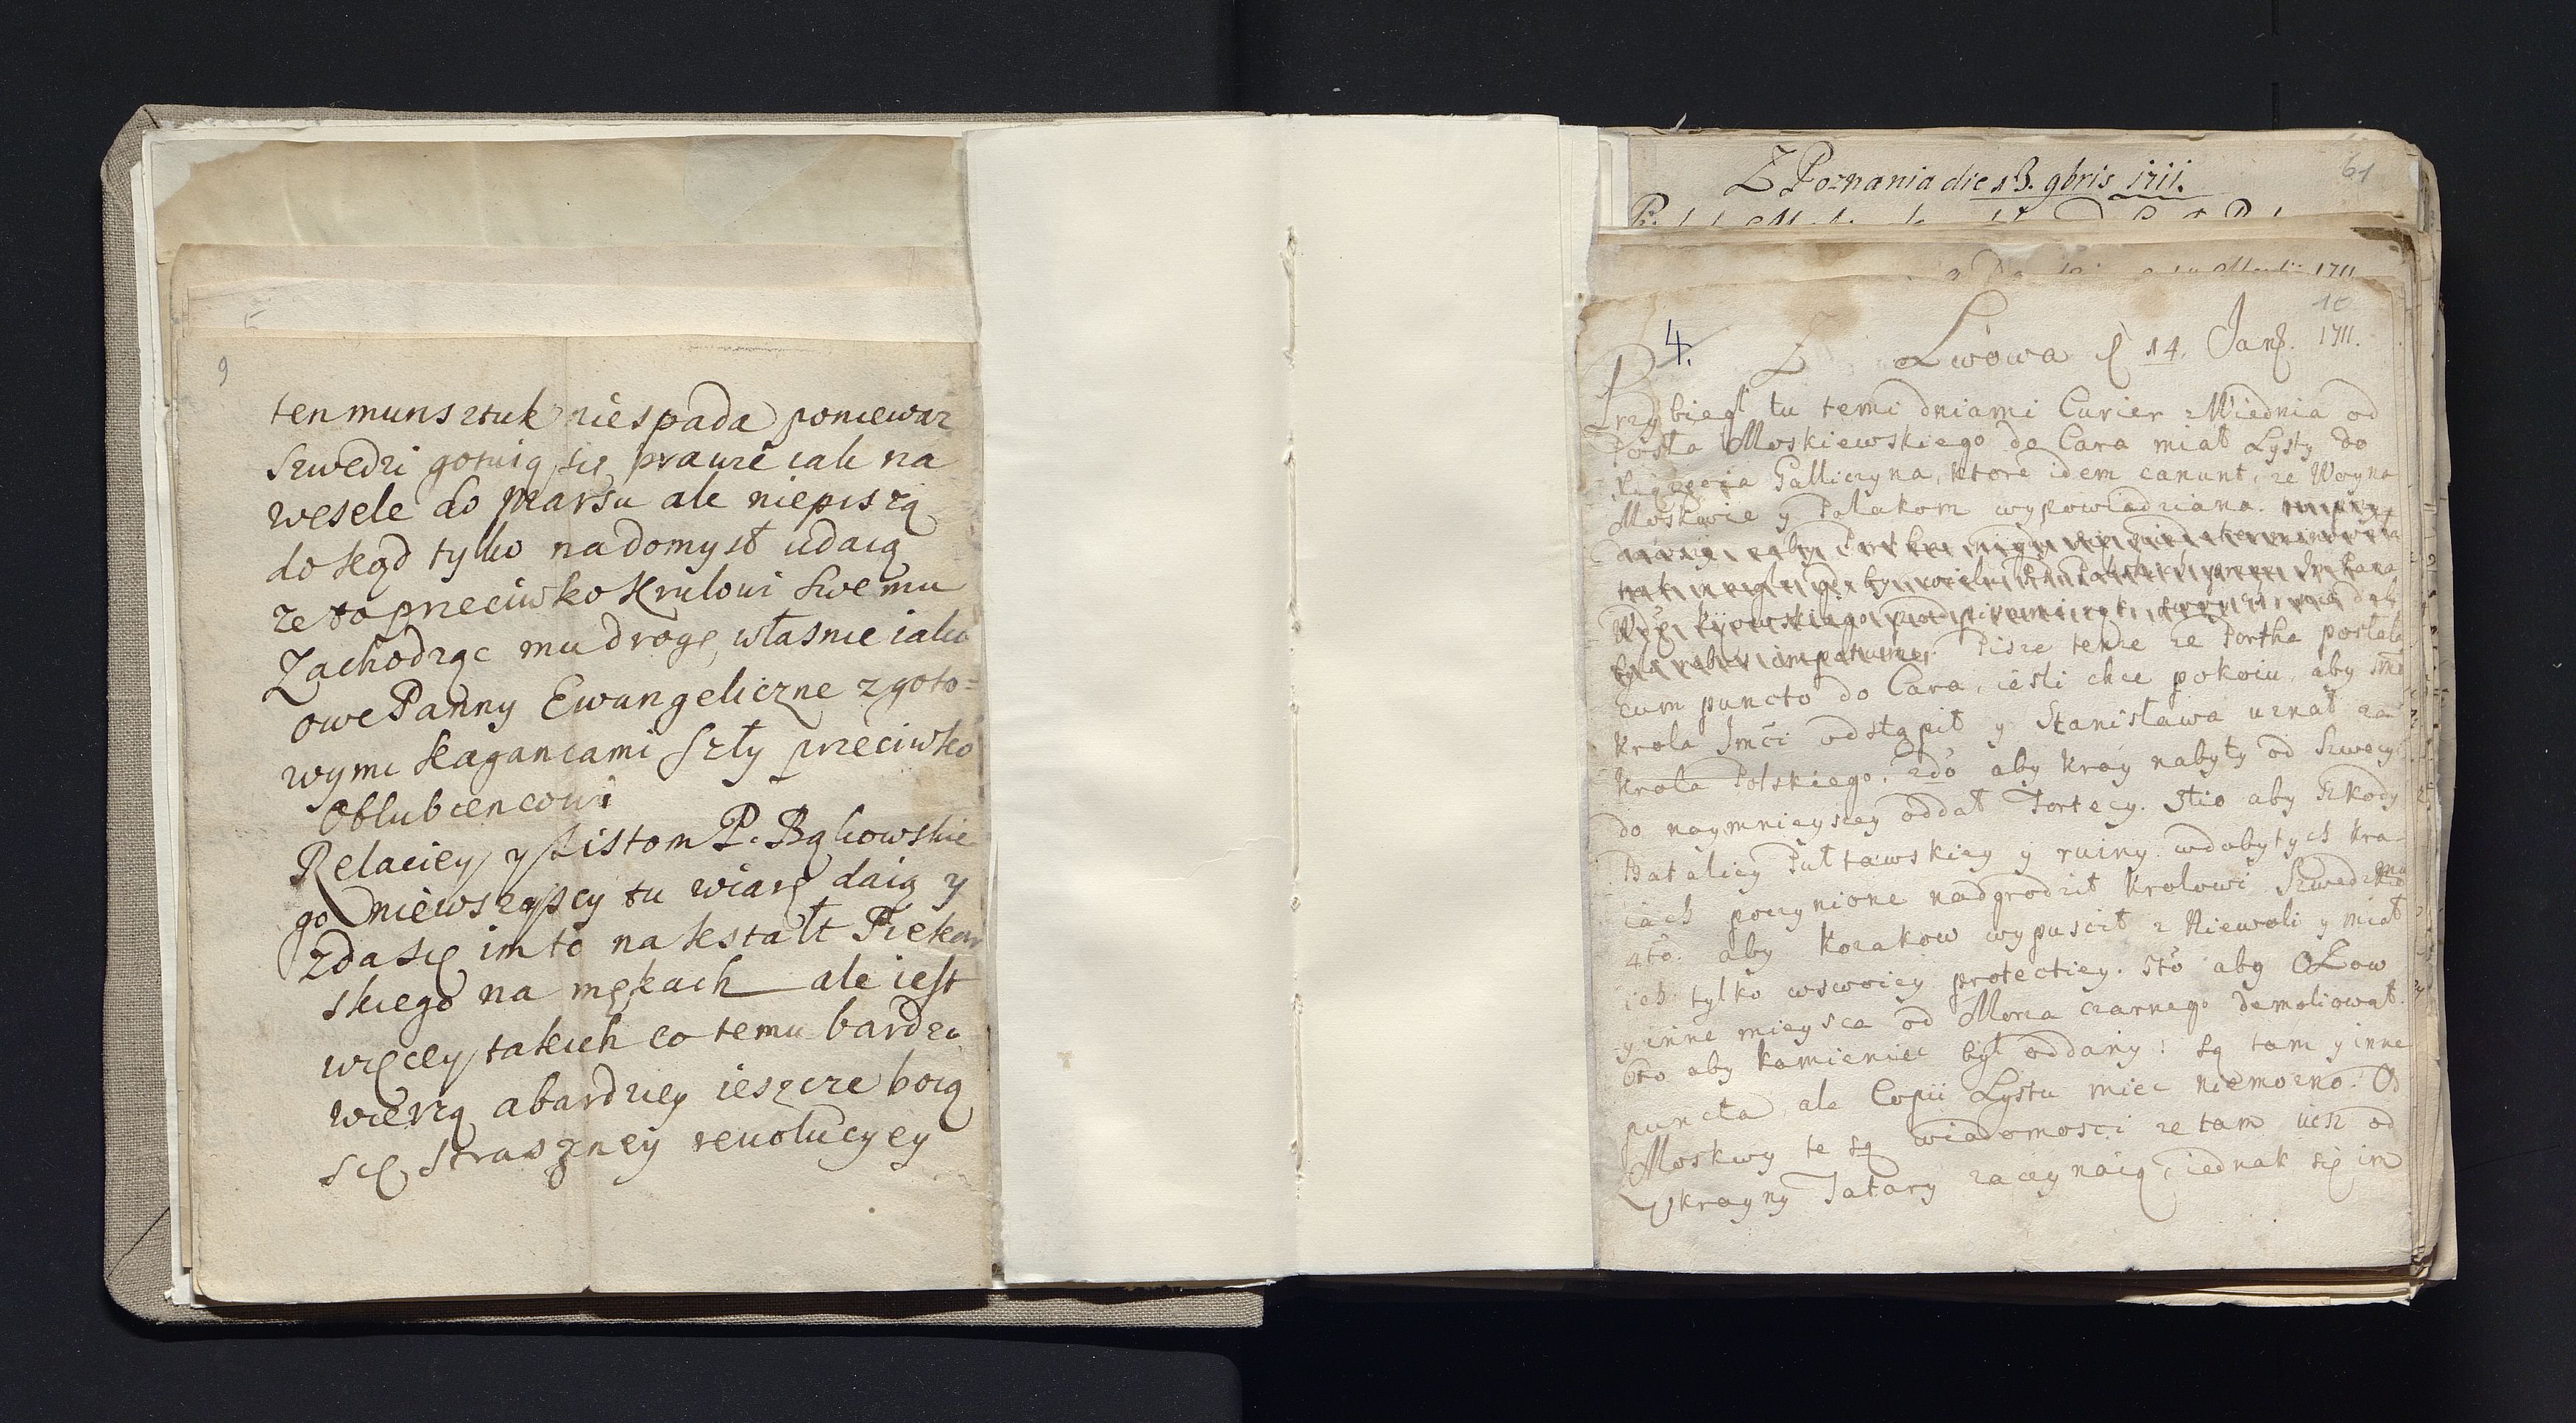 9
ten munsztuk niespada poniewaz
Szwedzi gotuią się prawie iak na
wesele do Marsu ale niepiszą
dokąd tylko na domysł udaią
ze to przeciwko Krulowi swemu
Zachodząc mu drogę, własnie iako
owe Panny Ewangeliczne zgoto=
wymi kagancami szły przeciwko
Oblubiencowi
Relaciey y Listom P. Bąkowskie
go niewszyscy tu wiarę daią y
zda się im to na kstałt Piekar
skiego na mękach ale iest
więcey takich co temu bardzo
wierzą abardziey ieszcze boią
się straszney revolucyey
Z Poznania die 13. 9bris 1711.
61
1711
10
4.
Z Lwowa d 14. Jan. 1711.
Przybiegł tu temi dniami Curier z Wiednia od
Posła Moskiewskiego do Cara miał Lysty do
Galliczyna, ktore idem canunt, ze Woyna
Moskwie y Polakom wypowiedziana.
Pisze tenze ze Portha posłała
cum puncto do Cara, iesli chce pokoiu, aby 1mo
Krola Jmci odstąpił y Stanisława uznał za
Krola Polskiego. 2do aby kray nabyty od Szwecyi
do naymnieyszey oddał Fortecy. 3tio aby szkody
Bataliey Pułtawskiey y ruiny wdobytych kra-
iach poczynione nadgrodził Krolowi Szwedzkmu
4to. aby Kozakow wypuscił z Niewoli y miał
ich tylko wswoiey protectiey. 5to aby OZow
y inne mieysca od Morza czarnego demoliował.
6to aby Kamieniec był oddany: są tam y inne
puncta, ale Copii Lystu miec niemozno. Od
Moskwy te są wiadomosci ze tam iusz od
Ukrayny Tatary zaczynaią, iednak się im